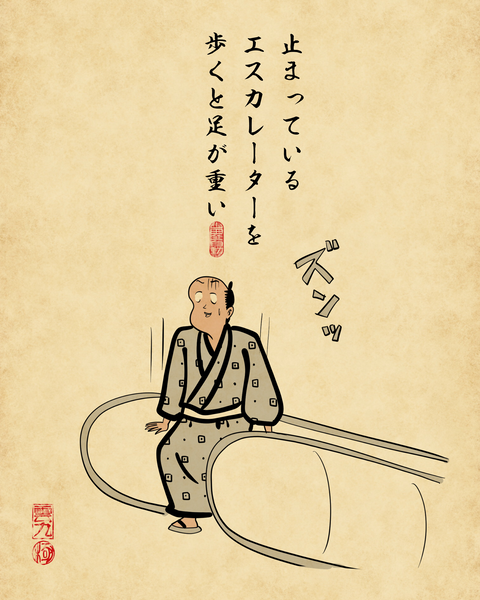 止まっている
エスカレーターを
歩くと足が重い
ズンッ